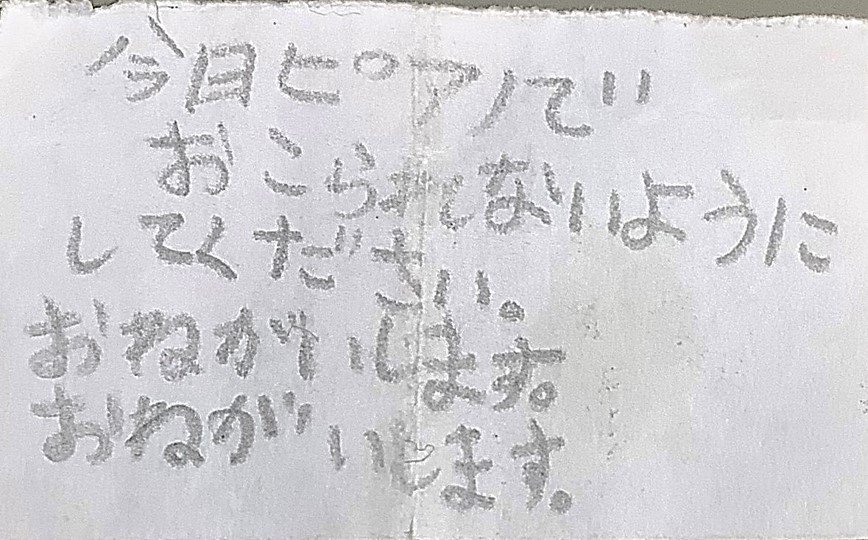 今日ピアノで
おこられないように
してください。
おねがいします。
おねがいします。